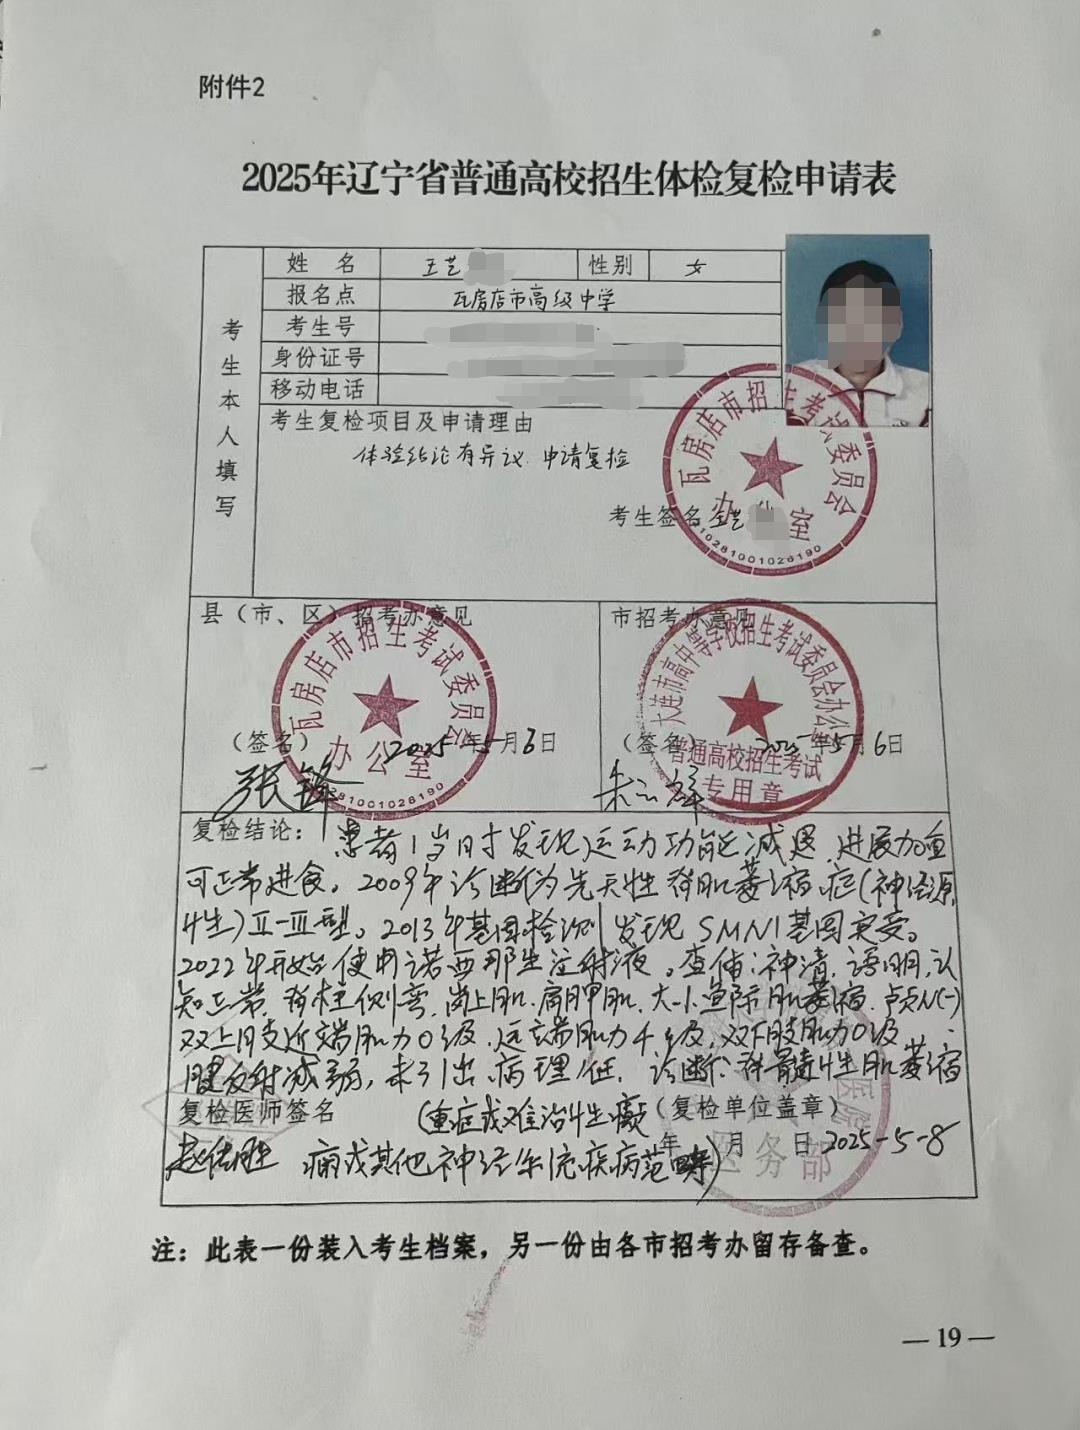 附件2
2025年辽宁省普通高校招生体检复检申请表
考生本人填写
姓 名 王艺 性别 女
报名点 瓦房店市高级中学
考生号
身份证号
移动电话
考生复检项目及申请理由
体验结论有异议.申请复检
考生签名 王艺
瓦房店市招生考试委员会
办公室
县（市、区）招考办意见
市招考办意见
瓦房店市招生考试委员会
办公室
大连市高中等学校招生考试委员会办公室
普通高校招生考试
专用章
（签名） 2025年5月6日
（签名） 2025年5月6日
张锋
复检结论：患者1岁时发现运动功能减退，进展加重
可正常进食。2009年诊断为先天性脊肌萎缩症(神经源
性)Ⅱ-Ⅲ型。2013年基因检测发现SMN1基因突变。
2022年开始使用诺西那生注射液。查体:神清,语明,认
知正常,脊柱侧弯,岗上肌.肩胛肌.大小鱼际肌萎缩.颅N(-)
双上肢近端肌力0级,远端肌力4级,双下肢肌力0级,
腱反射减弱,未引出病理征.诊断:脊髓性肌萎缩
复检医师签名 (重症或难治性癫 （复检单位盖章）
痫或其他神经系统疾病范畴) 年 月 日 2025-5-8
医务部
注：此表一份装入考生档案，另一份由各市招考办留存备查。
— 19 —